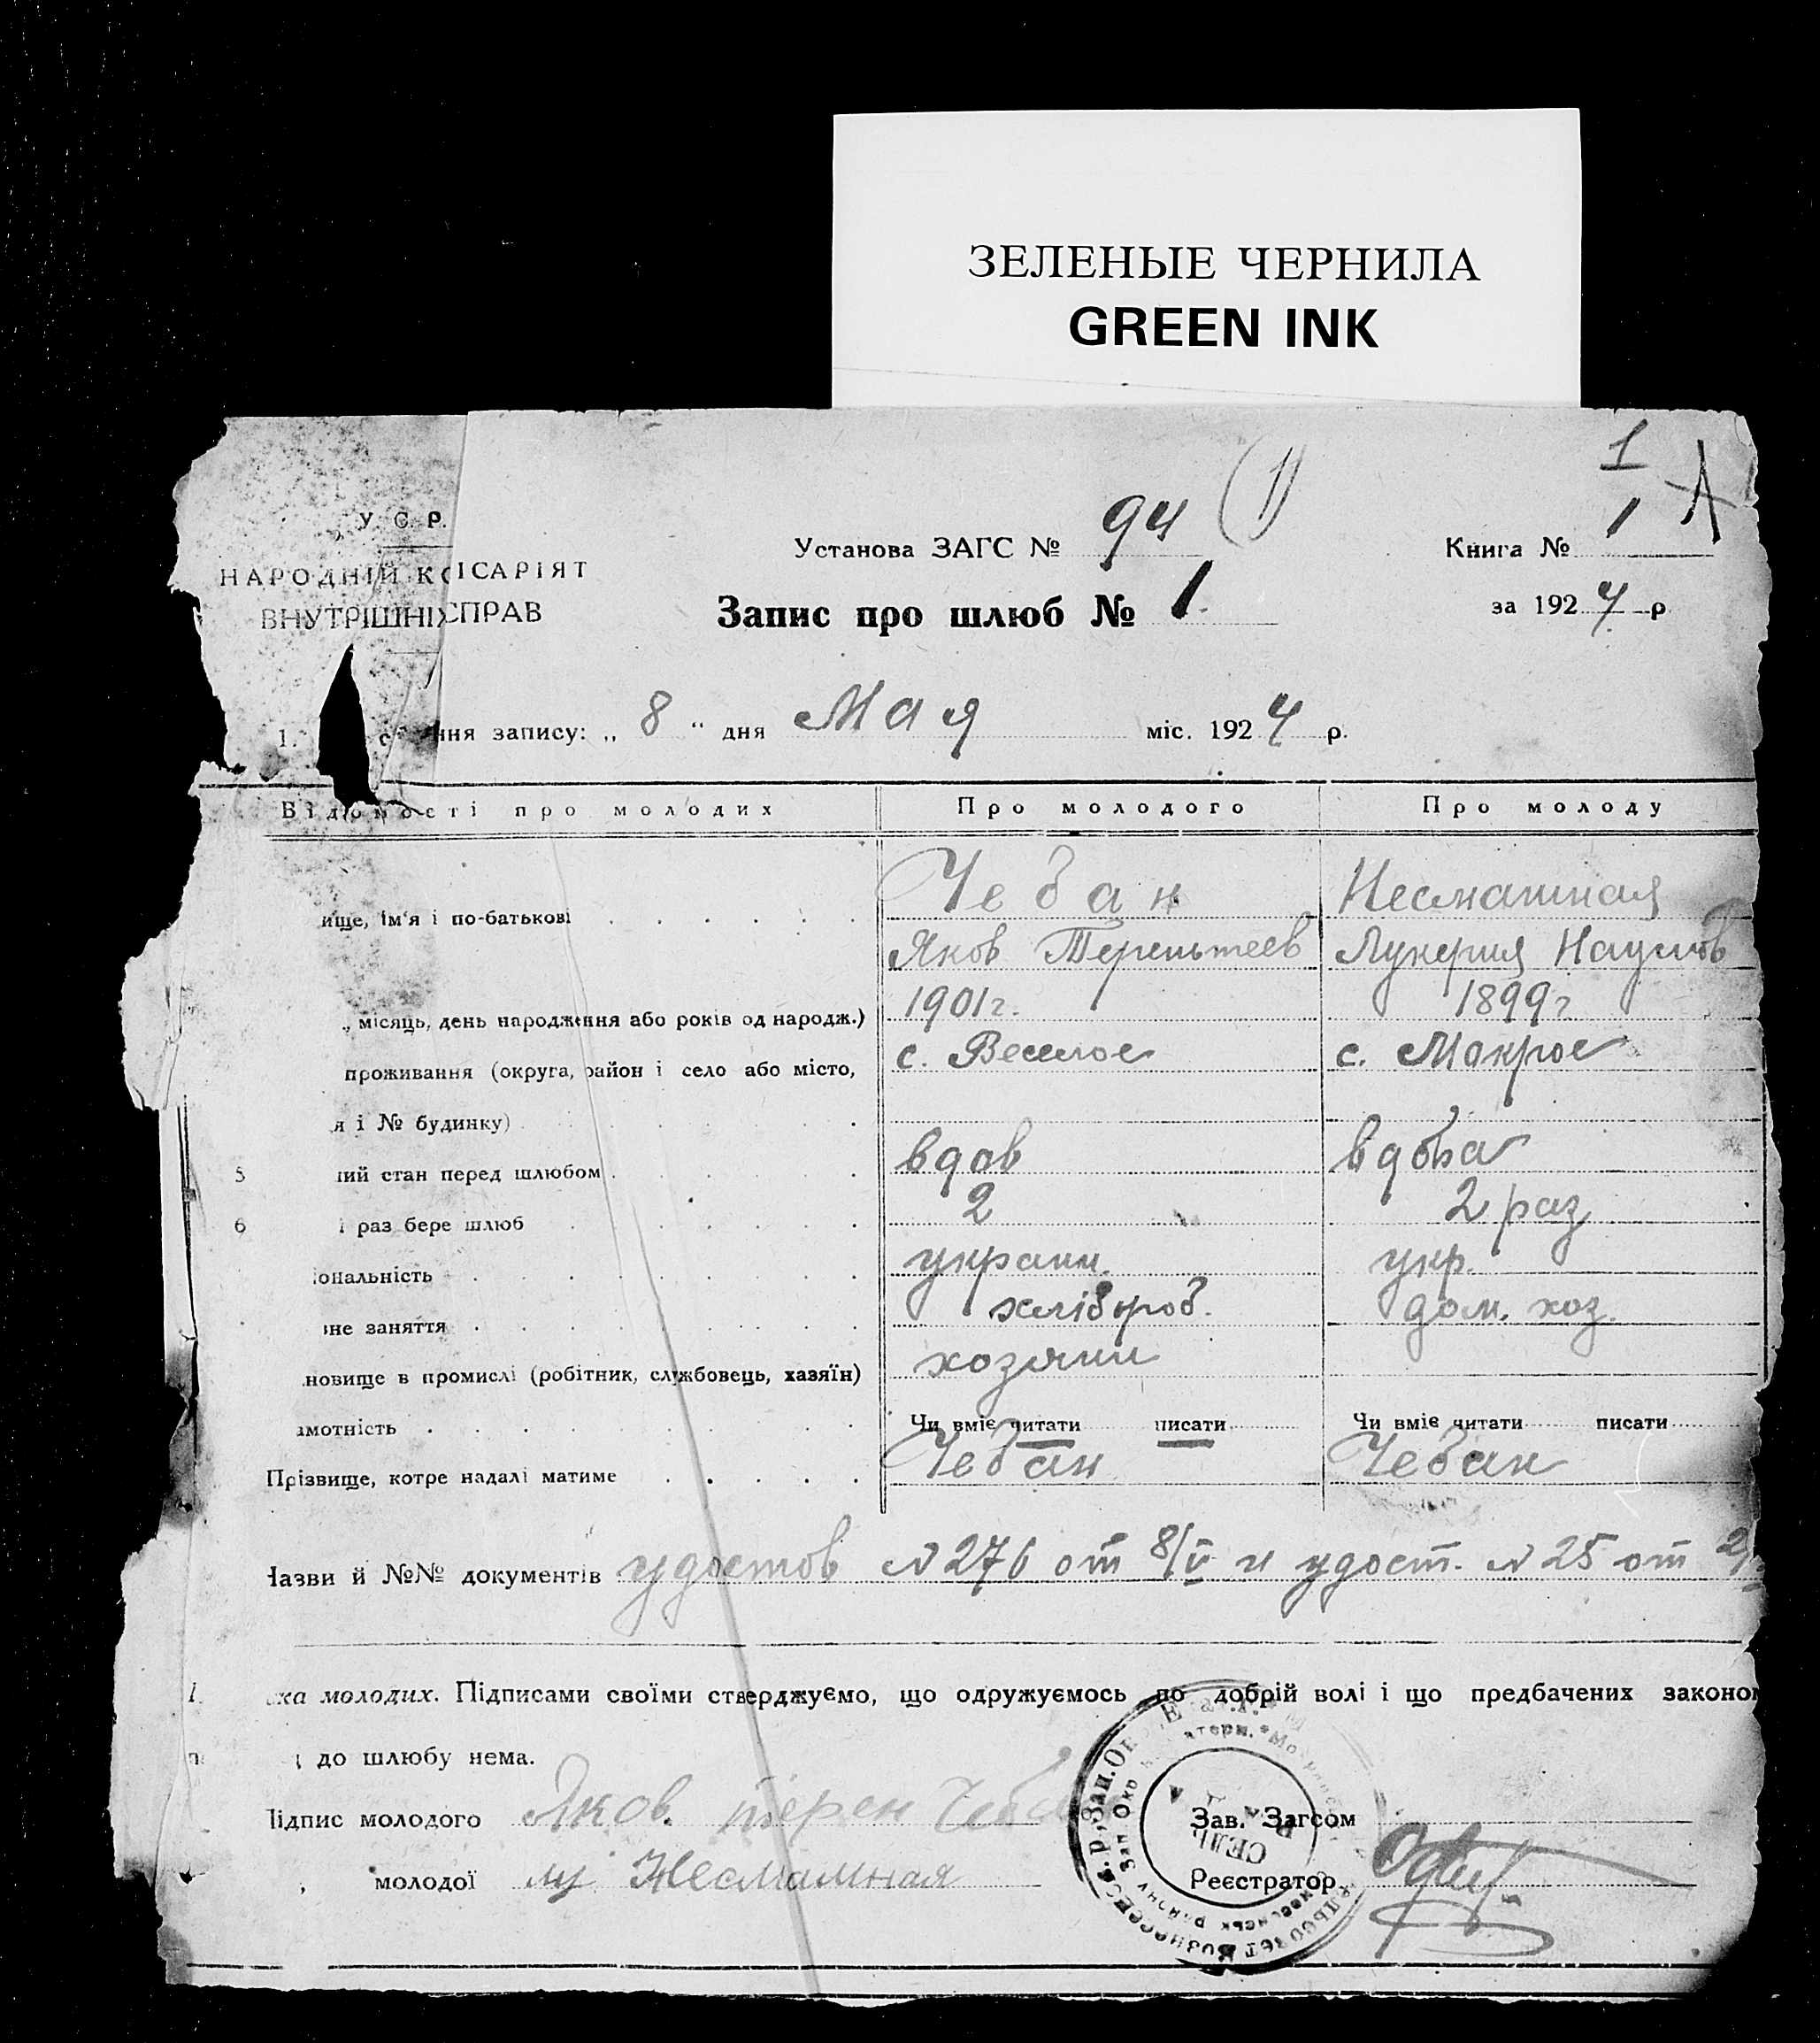 ЗЕЛЕНЫЕ ЧЕРНИЛА
GREEN INK
1
У. С. Р.
НАРОДНІЙ КОІСАРІЯТ
ВНУТРІШНІХ СПРАВ
Установа ЗАГС № 94 (1)
Книга № 1
Запис про шлюб № 1.
за 1924 р
1. ння запису: „ 8 “ дня Мая міс. 1924 р.
Відомості про молодих Про молодого Про молоду
Чебан Несматная
ище, ім'я і по-батькові
Яков Терентеев Лукерия Наумов
1901г. 1899г
„ місяць, день народження або років од народж.)
с. Веселое с. Мокрое
проживання (округа, район і село або місто,
я і № будинку)
5 ний стан перед шлюбом вдов вдова
6 і раз бере шлюб 2 2 раз
іональність украин. укр.
вне заняття хлібороб. дом. хоз.
новище в промислі (робітник, службовець, хазяїн) хозяин
амотність Чи вміє читати писати Чи вміє читати писати
Прізвище, котре надалі матиме Чебан Чебан
Назви й №№ документів удостов № 276 от 8/V и удост. № 25 от
ка молодих. Підписами своїми стверджуємо, що одружуємось по добрій волі і що предбачених законом
до шлюбу нема.
Підпис молодого Яков. терен Чебан
Зав. Загсом
молодої лу Несматная
Реєстратор